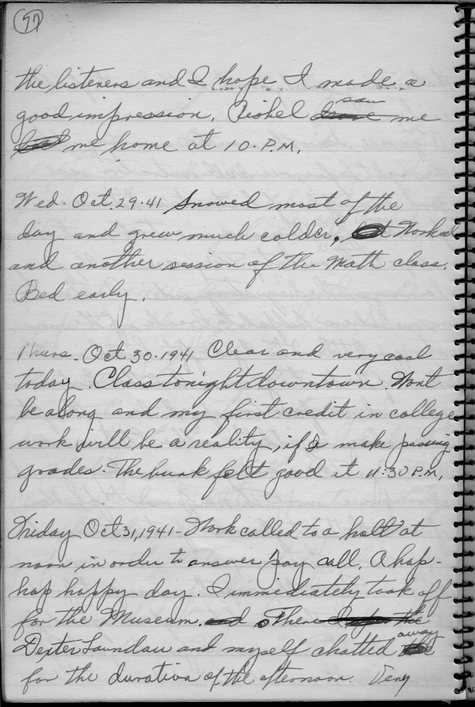 57
the listeners and I hope I made a
good impression. Riohel saw me
me home at 10. P.M.
Wed. Oct. 29-41 Snowed most of the
day and grew much colder. Worked
and another session of the Math class.
Bed early.
Thurs. Oct 30-1941 Clear and very cool
today. Class tonight downtown. Wont
be along and my first credit in college
work will be a reality, if I make passing
grades. The bunk felt good at 11:30 P.M.
Friday Oct 31, 1941 - Work called to a halt at
noon in order to answer pay call. A hap-
hap happy day. I immediately took off
for the Museum. and There the
Dexter and myself chatted away
for the duration of the afternoon. Very